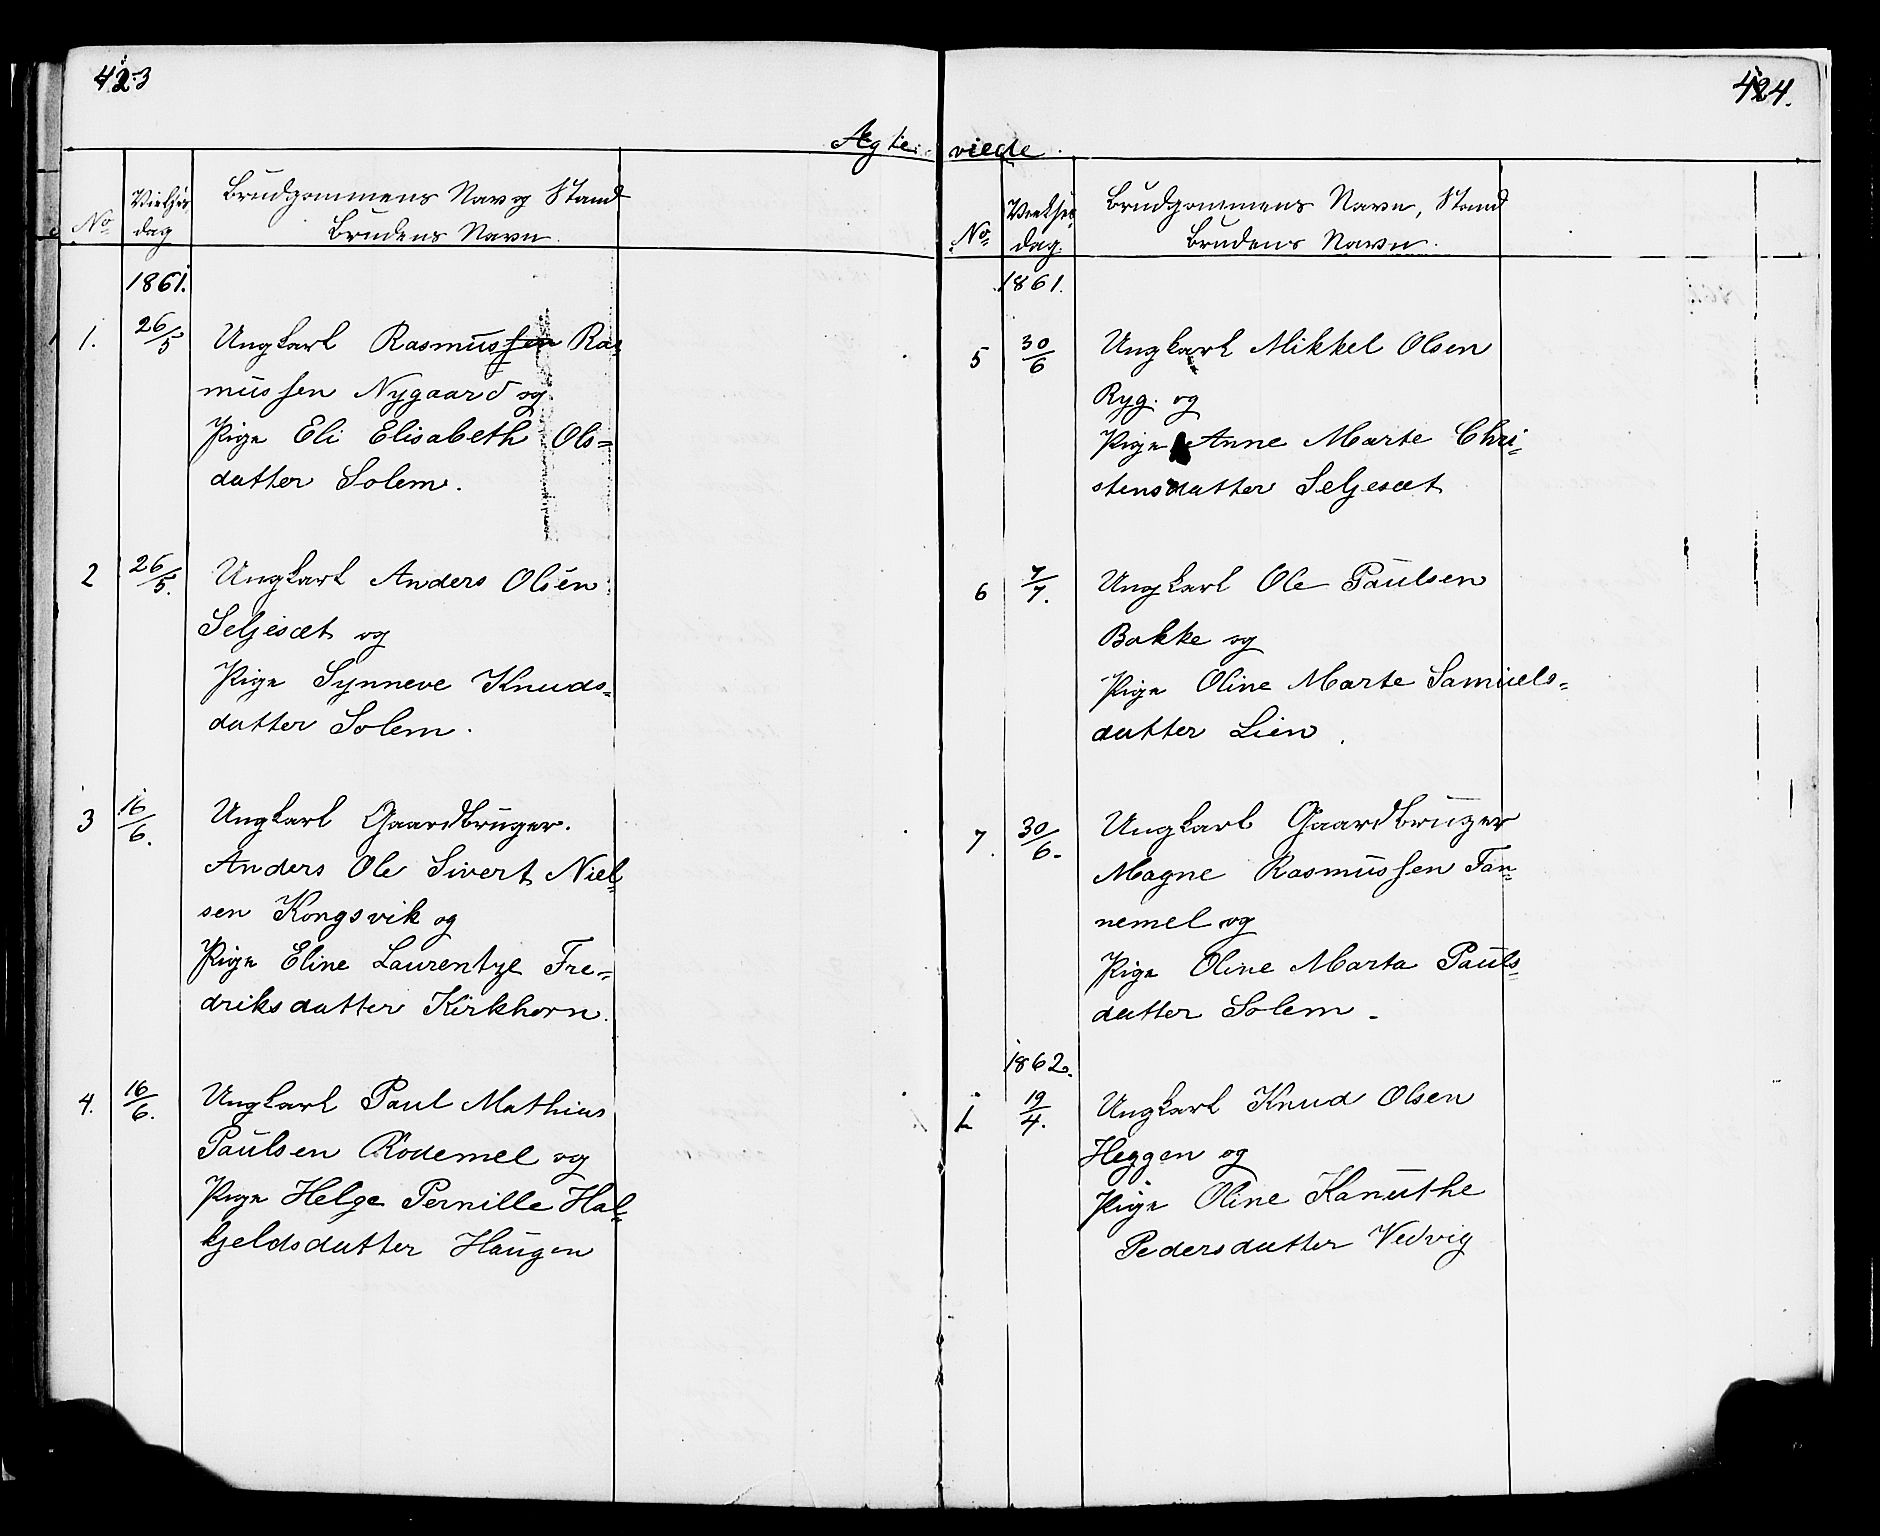 423
424.
Ægte viede.
No
Vielses
dag
Brudgommens Nav og Stand
Brudens Navn.
1861.
1. 26/5 Ungkarl Rasmussen Ras
mussen Nygaard og
Pige Eli Elisabeth Ols=
datter Solem.
2 26/5. Ungkarl Anders Olsen
Seljesæt og
Pige Synneve Knuds=
datter Solem.
3 16/6. Ungkarl Gaardbruger.
Anders Ole Sivert Niel=
sen Kongsvik og
Pige Eline Laurentze Fre=
driksdatter Kirkhorn.
4. 16/6. Ungkarl Paul Mathias
Paulsen Rödemel og
Pige Helge Pernille Hal=
kjeldsdatter Haugen
No
Vielses
dag.
Brudgommens Navn, Stand
Brudens Navn.
1861.
5 30/6 Ungkarl Mikkel Olsen
Ryg. og
Pige Anne Marte Chri=
stensdatter Seljesæt
6 7/7. Ungkarl Ole Paulsen
Bakke og
Pige Oline Marte Samuels=
datter Lien.
7. 30/6. Ungkarl Gaardbruger
Magne Rasmussen Tan=
nemel og
Pige Oline Marta Pauls=
datter Solem.
1862.
1 19/4. Ungkarl Knud Olsen
Heggen og
Pige Oline Kanuthe
Pedersdatter Vedvig